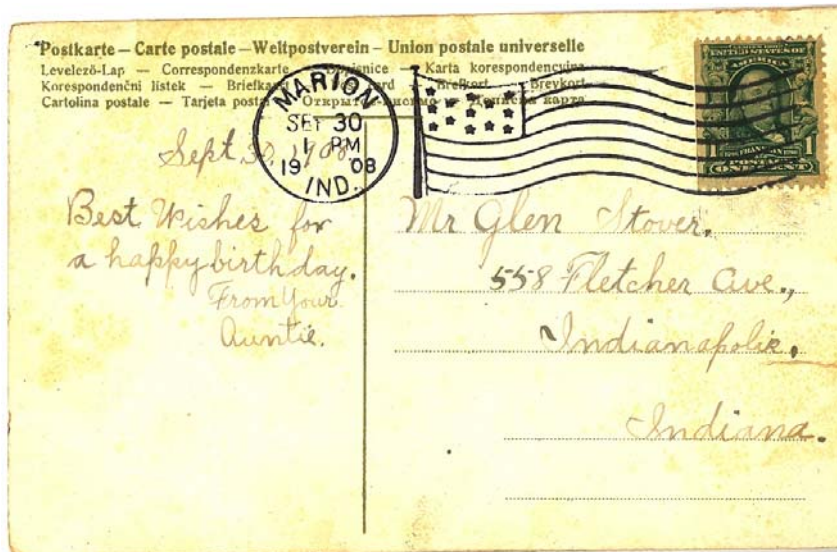 Postkarte – Carte postale – Weltpostverein – Union postale universelle
Levelező-Lap — Correspondenzkarte — Dopisnice — Karta korespondencyjna
Korespondenční lístek — Brefkort — Brevkort
Cartolina postale — Tarjeta postal — Открытое письмо
MARION
SEP 30
1 PM
1908
IND.
UNITED STATES OF
AMERICA
FRANKLIN
1 POSTAGE 1
ONE CENT
Sept 30, 1908
Best Wishes for
a happy birthday.
From Your
Auntie.
Mr Glen Stover,
558 Fletcher Ave.,
Indianapolis,
Indiana.